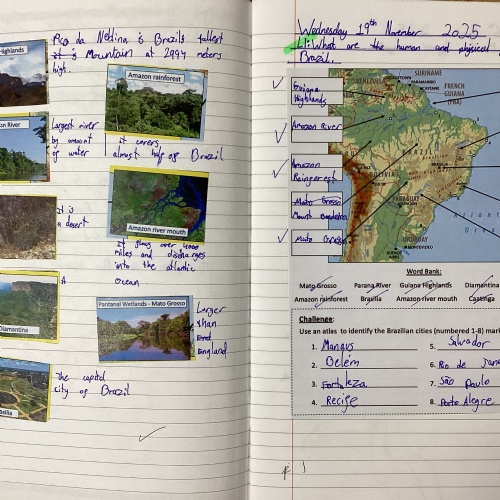 Pico da Neblina is Brazils tallest
it is Mountain at 2994 meters
high.
Highlands
Amazon rainforest
it covers
almost half of Brazil
on River
Largest river
by amount
of water
Amazon River mouth
it flows over 4000
miles and discharges
into the atlantic
ocean
it is
a desert
Diamantina
A
Pantanal Wetlands - Mato Grosso
Larger
than
England
The capital
city of Brazil
Wednesday 19th November 2025
LI: What are the human and physical
Brazil.
Guiana
Highlands
Amazon River
Amazon
Rainforest
Mato Grosso
Mato Grosso
SURINAME
FRENCH
GUIANA
(FRA)
BRAZIL
BOLIVIA
PARAGUAY
URUGUAY
Word Bank:
Mato Grosso Parana River Guiana Highlands Diamantina
Amazon rainforest Brasilia Amazon river mouth Caatinga
Challenge:
Use an atlas to identify the Brazilian cities (numbered 1-8) mark
1. Manaus
2. Belém
3. Fortaleza
4. Recife
5. Salvador
6. Rio de Jane
7. São Paulo
8. Porto Alegre